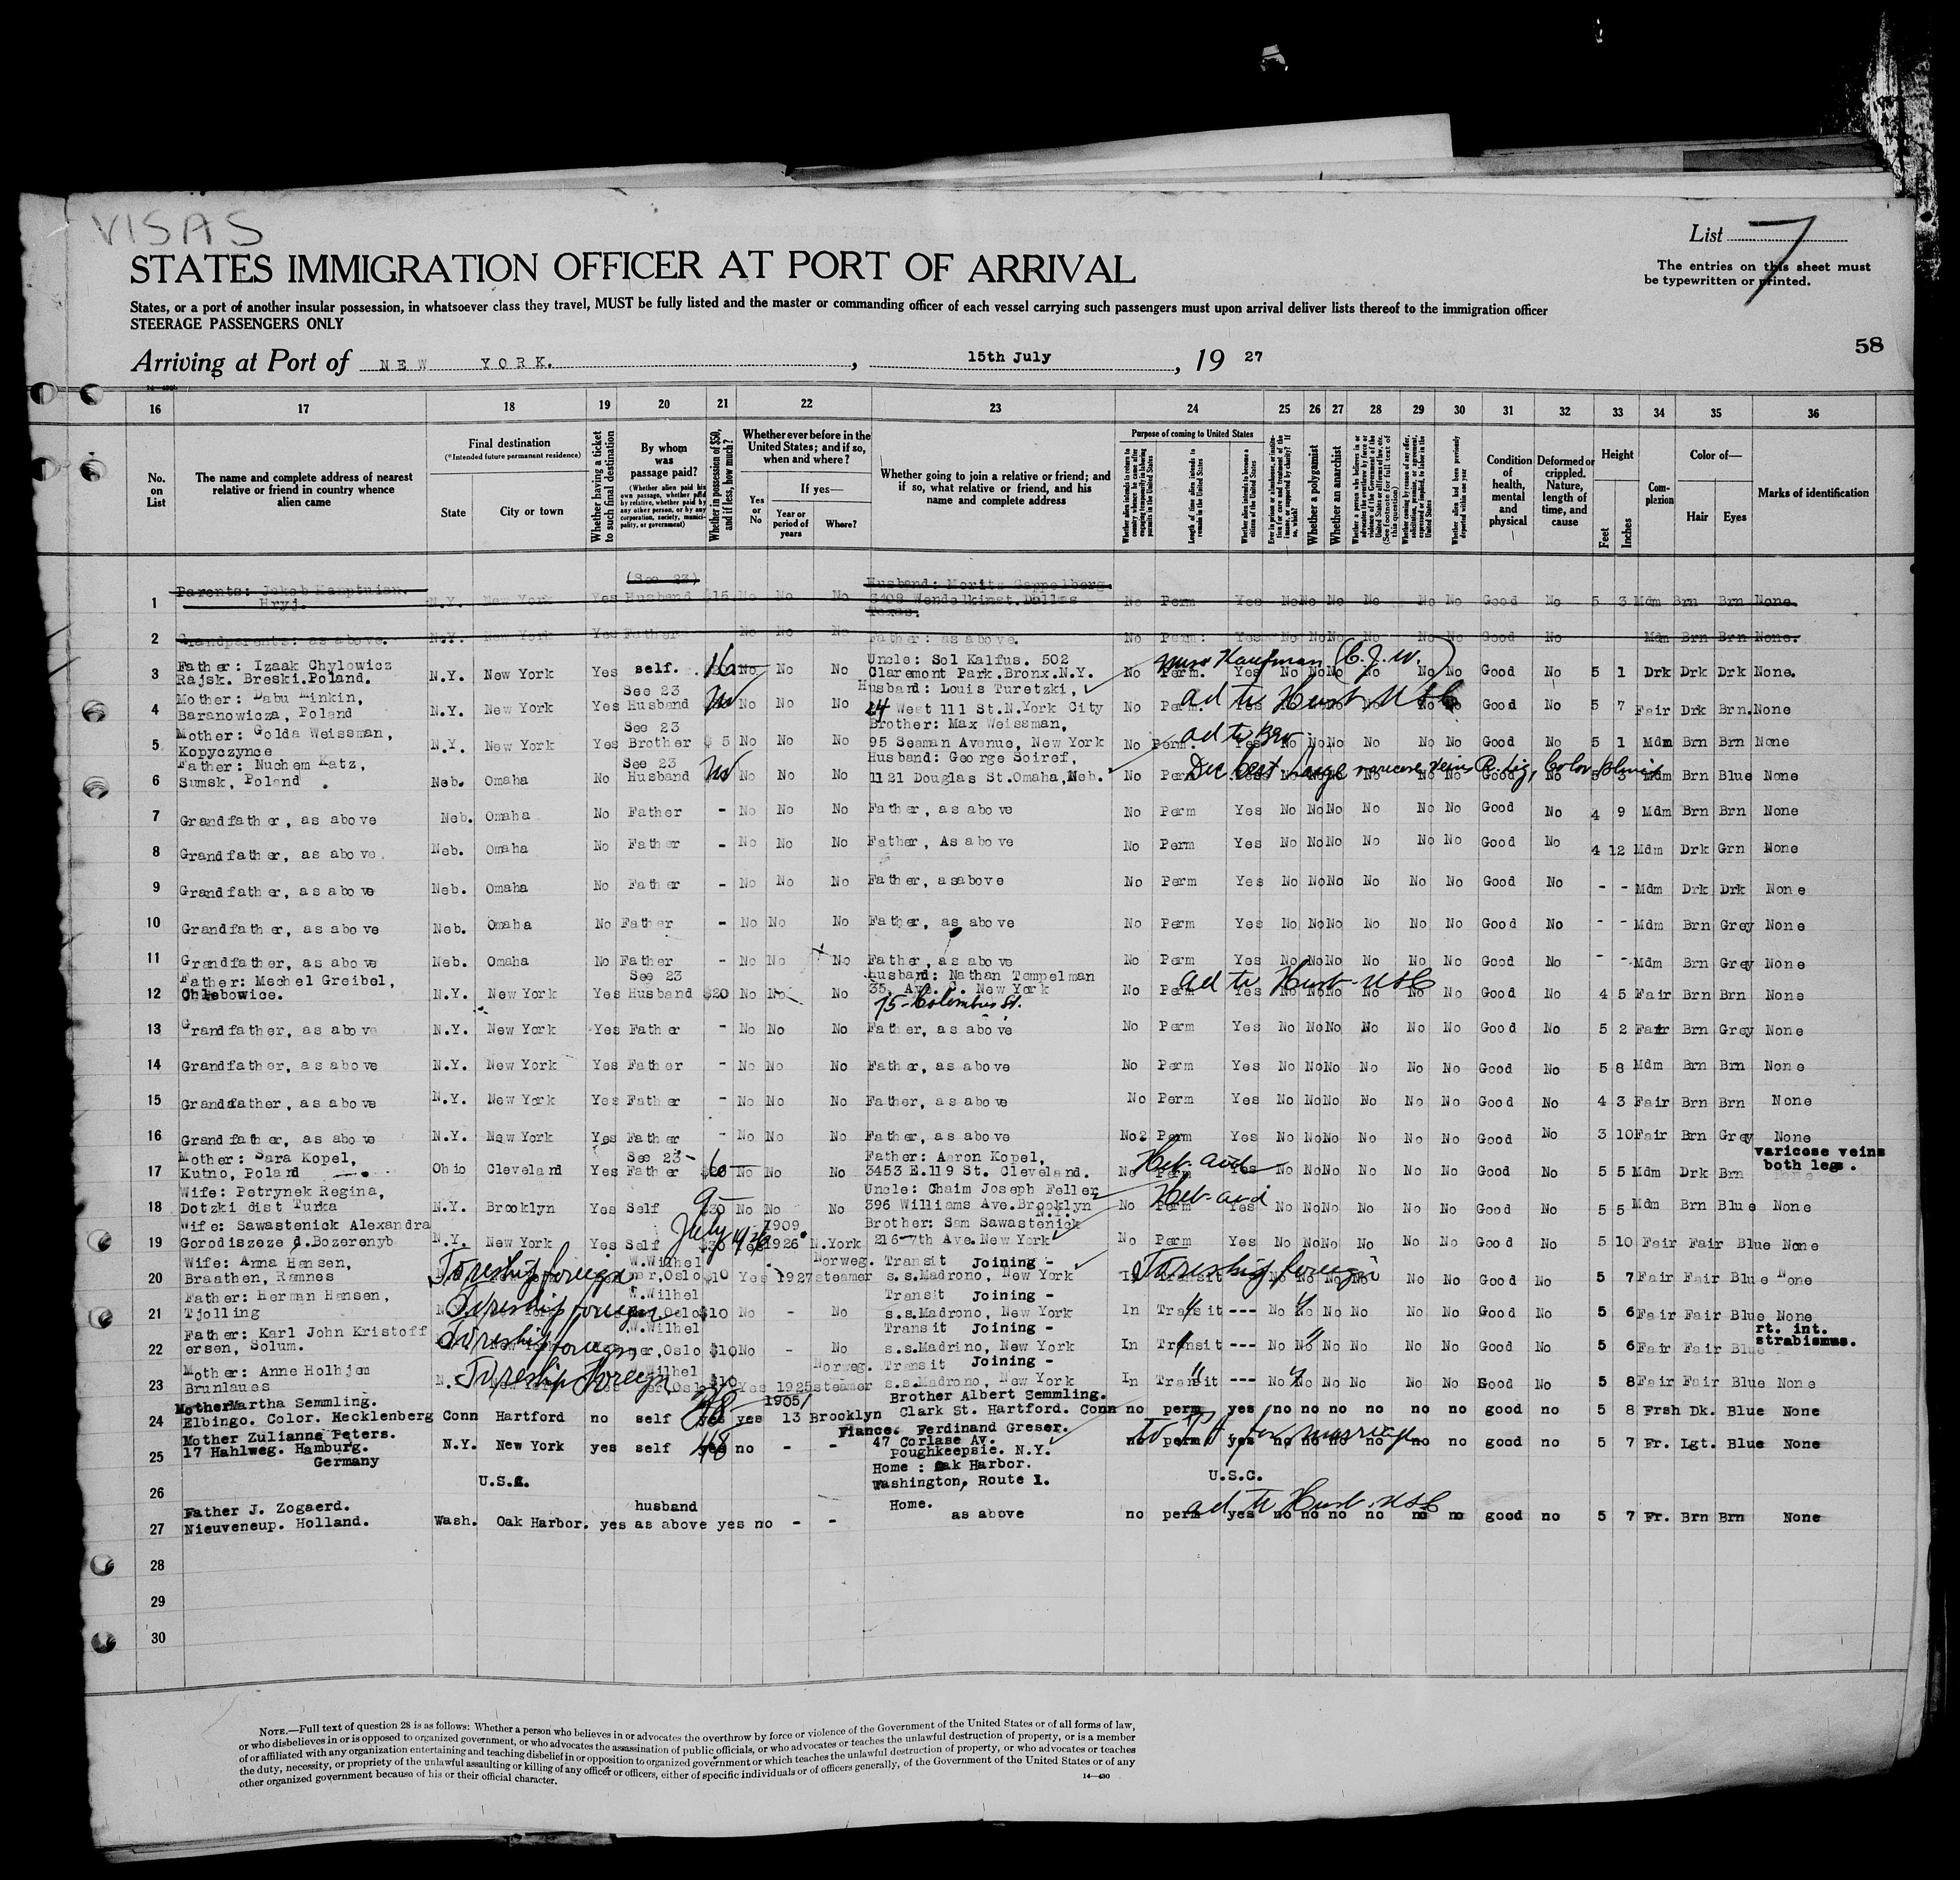 VISAS
List 7
STATES IMMIGRATION OFFICER AT PORT OF ARRIVAL
The entries on this sheet must
be typewritten or printed.
States, or a port of another insular possession, in whatsoever class they travel, MUST be fully listed and the master or commanding officer of each vessel carrying such passengers must upon arrival deliver lists thereof to the immigration officer
STEERAGE PASSENGERS ONLY
58
Arriving at Port of NEW YORK. , 15th July , 19 27
16 17 18 19 20 21 22 23 24 25 26 27 28 29 30 31 32 33 34 35 36
No. on List
The name and complete address of nearest relative or friend in country whence alien came
Final destination
(*Intended future permanent residence)
State
City or town
Whether having a ticket to such final destination
By whom was passage paid?
(Whether alien paid his own passage, whether paid by relative, whether paid by any other person, or by any corporation, society, municipality, or government)
Whether in possession of $50, and if less, how much?
Whether ever before in the United States; and if so, when and where?
Yes or No
If yes—
Year or period of years
Where?
Whether going to join a relative or friend; and if so, what relative or friend, and his name and complete address
Purpose of coming to United States
Length of time alien intends to remain in the United States
Whether alien intends to become a citizen of the United States
Whether a polygamist
Whether an anarchist
Condition of health, mental and physical
Deformed or crippled. Nature, length of time, and cause
Height
Feet
Inches
Complexion
Color of—
Hair
Eyes
Marks of identification
1 Parents: Jakob Hryj. N.Y. New York Yes (See 23) Husband $15 No No No Husband: Moritz Gappelberg Dallas Texas. No Perm Yes No No No No No No Good No 5 3 Mdm Brn Brn None.
2 Grandparents: as above. N.Y. New York Yes Father No No No Father: as above. No Perm: Yes No No No No No No Good No Mdm Brn Brn None.
3 Father: Izaak Chylowicz Rajsk. Breski.Poland. N.Y. New York Yes self. 16 No No No Uncle: Sol Kalfus. 502 Claremont Park.Bronx.N.Y. No Perm. Miss Kaufman (C.J.W.) Yes No No No No No No Good No 5 1 Drk Drk Drk None.
4 Mother: Dabu Minkin, Baranowicza, Poland N.Y. New York Yes See 23 Husband No No No Husband: Louis Turetzki, 24 West 111 St.N.York City No Perm ad to Husb USC Good No 5 7 Fair Drk Brn. None
5 Mother: Golda Weissman, Kopyczynce N.Y. New York Yes See 23 Brother $ 5 No No No Brother: Max Weissman, 95 Seaman Avenue, New York No Perm. ad to Bro Yes No No No No No No Good No 5 1 Mdm Brn Brn None
6 Father: Nuchem Katz, Sumsk, Poland Neb. Omaha No See 23 Husband No No No Husband: George Soiref, 1121 Douglas St.Omaha,Neb. No Perm large varicose veins R. Good No 5 3 Mdm Brn Blue None
7 Grandfather, as above Neb. Omaha No Father - No No No Father, as above No Perm Yes No No No No No No Good No 4 9 Mdm Brn Brn None
8 Grandfather, as above. Neb. Omaha No Father - No No No Father, As above No Perm Yes No No No No No No Good No 4 12 Mdm Drk Grn None
9 Grandfather, as above Neb. Omaha No Father - No No No Father, asabove No Perm Yes No No No No No No Good No - - Mdm Drk Drk None
10 Grandfather, as above Neb. Omaha No Father - No No No Father, as above No Perm Yes No No No No No No Good No - - Mdm Brn Grey None
11 Grandfather, as above Neb. Omaha No Father - No No No Father, as above No Perm Yes No No No No No No Good No - - Mdm Brn Grey None
12 Father: Mechel Greibel, Chlebowice. N.Y. New York Yes See 23 Husband $20 No No No Husband: Nathan Tempelman 35, Av. C. New York 75-Columbus St. No Perm ad to Husb-USC Yes No No No No No No Good No 4 5 Fair Brn Brn None
13 Grandfather, as above N.Y. New York Yes Father - No No No Father, as above No Perm Yes No No No No No No Good No 5 2 Fair Brn Grey None
14 Grandfather, as above N.Y. New York Yes Father - No No No Father, as above No Perm Yes No No No No No No Good No 5 8 Mdm Brn Brn None
15 Grandfather, as above N.Y. New York Yes Father - No No No Father, as above No Perm Yes No No No No No No Good No 4 3 Fair Brn Brn None
16 Grandfather, as above N.Y. New York Yes Father - No No No Father, as above No2 Perm Yes No No No No No No Good No 3 10 Fair Brn Grey None
17 Mother: Sara Kopel, Kutno, Poland Ohio Cleveland Yes See 23- Father $20 No No No Father: Aaron Kopel, 3453 E.119 St. Cleveland. No Perm Heb. aid Yes No No No No No No Good No 5 5 Mdm Drk Brn varicose veins both legs.
18 Wife: Petrynek Regina, Dotzki dist Turka N.Y. Brooklyn Yes Self $30 No No No Uncle: Chaim Joseph Feller 396 Williams Ave.Brooklyn N.Y. No Perm Heb-aid Yes No No No No No No Good No 5 5 Mdm Brn Blue None
19 Wife: Sawastenick Alexandra Gorodiszeze d.Bozerenyb N.Y. New York Yes Self $30 July 1926 Yes 1909 1926 N.York Brother: Sam Sawastenick 216-7th Ave.New York No Perm Yes No No No No No No Good No 5 10 Fair Fair Blue None
20 Wife: Anna Hansen, Braathen, Ramnes Foreship foreign W.Wilhel mer,Oslo $10 Yes 1927 Norweg. steamer Transit Joining - s.s.Madrono, New York In Transit Foreship foreign No No No No No No Good No 5 7 Fair Fair Blue None
21 Father: Herman Hansen, Tjolling Foreship foreign W.Wilhel Oslo $10 No - No Transit Joining - s.s.Madrono, New York In Transit " --- No No No No No No Good No 5 6 Fair Fair Blue None
22 Father: Karl John Kristoff ersen, Solum. Foreship foreign W.Wilhel mer,Oslo $10 No - No Transit Joining - s.s.Madrino, New York In Transit " --- No No No No No No Good No 5 6 Fair Fair Blue rt. int. strabismus.
23 Mother: Anne Holhjem Brunlaues Foreship Foreign W.Wilhel $10 Yes 1925 Norweg. steamer Transit Joining - s.s.Madrono, New York In Transit " --- No No No No No No Good No 5 8 Fair Fair Blue None
24 Mother Martha Semmling. Elbingo. Color. Mecklenberg Conn Hartford no self yes yes 1905/ 13 Brooklyn Brother Albert Semmling. Clark St. Hartford. Conn no perm yes no no no no no no good no 5 8 Frsh Dk. Blue None
25 Mother Zulianna Peters. 17 Hahlweg. Hamburg. Germany N.Y. New York yes self yes 48 no - - Fiance. Ferdinand Greser. 47 Corlase Av. Poughkeepsie. N.Y. no perm for marriage yes no no no no no no good no 5 7 Fr. Lgt. Blue None
26 U.S.A. Home : Oak Harbor. Washington, Route 1. U.S.C.
27 Father J. Zogaerd. Nieuveneup. Holland. Wash. Oak Harbor. yes husband as above yes no - - Home. as above no perm ad to Husb. USC yes no no no no no no good no 5 7 Fr. Brn Brn None
28
29
30
NOTE.—Full text of question 28 is as follows: Whether a person who believes in or advocates the overthrow by force or violence of the Government of the United States or of all forms of law,
or who disbelieves in or is opposed to organized government, or who advocates the assassination of public officials, or who advocates or teaches the unlawful destruction of property, or is a member
of or affiliated with any organization entertaining and teaching disbelief in or opposition to organized government or which teaches the unlawful destruction of property, or who advocates or teaches
the duty, necessity, or propriety of the unlawful assaulting or killing of any officer or officers, either of specific individuals or of officers generally, of the Government of the United States or of any
other organized government because of his or their official character.
14—430